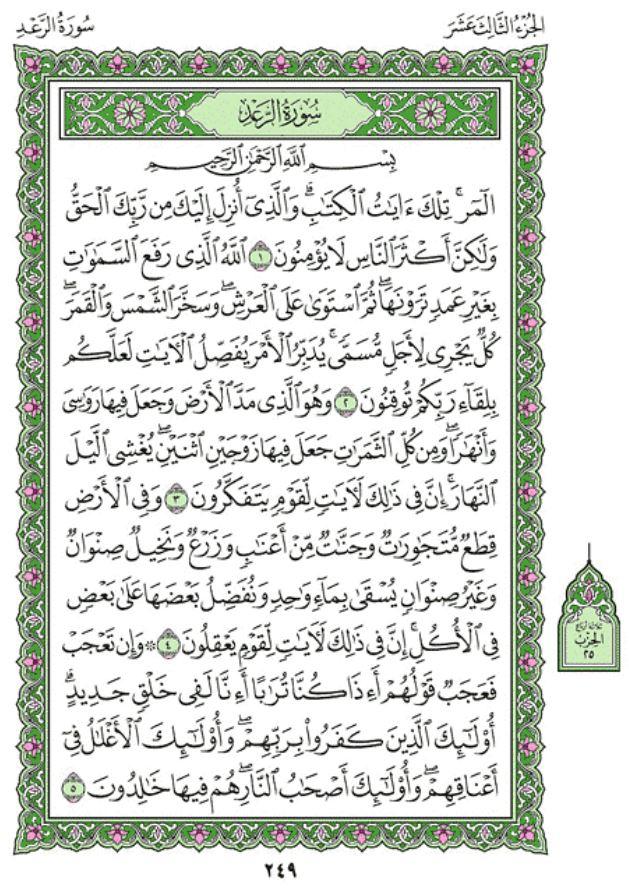 الجزء الثالث عشر
سورة الرعد
سُورَةُ الرَّعْدِ
بِسْمِ اللَّهِ الرَّحْمَٰنِ الرَّحِيمِ
الٓمٓرۚ تِلۡكَ ءَايَٰتُ ٱلۡكِتَٰبِۗ وَٱلَّذِيٓ أُنزِلَ إِلَيۡكَ مِن رَّبِّكَ ٱلۡحَقُّ
وَلَٰكِنَّ أَكۡثَرَ ٱلنَّاسِ لَا يُؤۡمِنُونَ ١ ٱللَّهُ ٱلَّذِي رَفَعَ ٱلسَّمَٰوَٰتِ
بِغَيۡرِ عَمَدٖ تَرَوۡنَهَاۖ ثُمَّ ٱسۡتَوَىٰ عَلَى ٱلۡعَرۡشِۖ وَسَخَّرَ ٱلشَّمۡسَ وَٱلۡقَمَرَۖ
كُلّٞ يَجۡرِي لِأَجَلٖ مُّسَمّٗىۚ يُدَبِّرُ ٱلۡأَمۡرَ يُفَصِّلُ ٱلۡأٓيَٰتِ لَعَلَّكُم
بِلِقَآءِ رَبِّكُمۡ تُوقِنُونَ ٢ وَهُوَ ٱلَّذِي مَدَّ ٱلۡأَرۡضَ وَجَعَلَ فِيهَا رَوَٰسِيَ
وَأَنۡهَٰرٗاۖ وَمِن كُلِّ ٱلثَّمَرَٰتِ جَعَلَ فِيهَا زَوۡجَيۡنِ ٱثۡنَيۡنِۖ يُغۡشِي ٱلَّيۡلَ
ٱلنَّهَارَۚ إِنَّ فِي ذَٰلِكَ لَأٓيَٰتٖ لِّقَوۡمٖ يَتَفَكَّرُونَ ٣ وَفِي ٱلۡأَرۡضِ
قِطَعٞ مُّتَجَٰوِرَٰتٞ وَجَنَّٰتٞ مِّنۡ أَعۡنَٰبٖ وَزَرۡعٞ وَنَخِيلٞ صِنۡوَانٞ
وَغَيۡرُ صِنۡوَانٖ يُسۡقَىٰ بِمَآءٖ وَٰحِدٖ وَنُفَضِّلُ بَعۡضَهَا عَلَىٰ بَعۡضٖ
فِي ٱلۡأُكُلِۚ إِنَّ فِي ذَٰلِكَ لَأٓيَٰتٖ لِّقَوۡمٖ يَعۡقِلُونَ ٤ ۞ وَإِن تَعۡجَبۡ
فَعَجَبٞ قَوۡلُهُمۡ أَءِذَا كُنَّا تُرَٰبًا أَءِنَّا لَفِي خَلۡقٖ جَدِيدٍۗ
أُوْلَٰٓئِكَ ٱلَّذِينَ كَفَرُواْ بِرَبِّهِمۡۖ وَأُوْلَٰٓئِكَ ٱلۡأَغۡلَٰلُ فِيٓ
أَعۡنَاقِهِمۡۖ وَأُوْلَٰٓئِكَ أَصۡحَٰبُ ٱلنَّارِۖ هُمۡ فِيهَا خَٰلِدُونَ ٥
الحزب
٢٥
٢٤٩